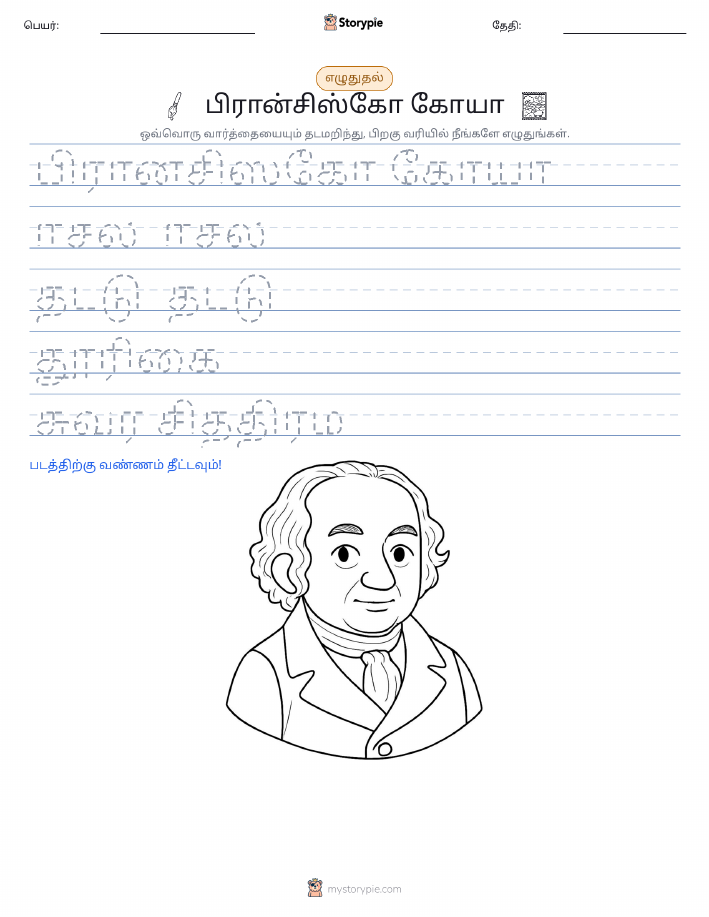 பெயர்:
Storypie
தேதி:
எழுதுதல்
பிரான்சிஸ்கோ கோயா
ஒவ்வொரு வார்த்தையையும் தடமறிந்து, பிறகு வரியில் நீங்களே எழுதுங்கள்.
பிரானசிஸகோ கோயா
ஈசல் ஈசல்
தடடு தடடு
தூரிகை
சுவர சிததிரம
படத்திற்கு வண்ணம் தீட்டவும்!
mystorypie.com